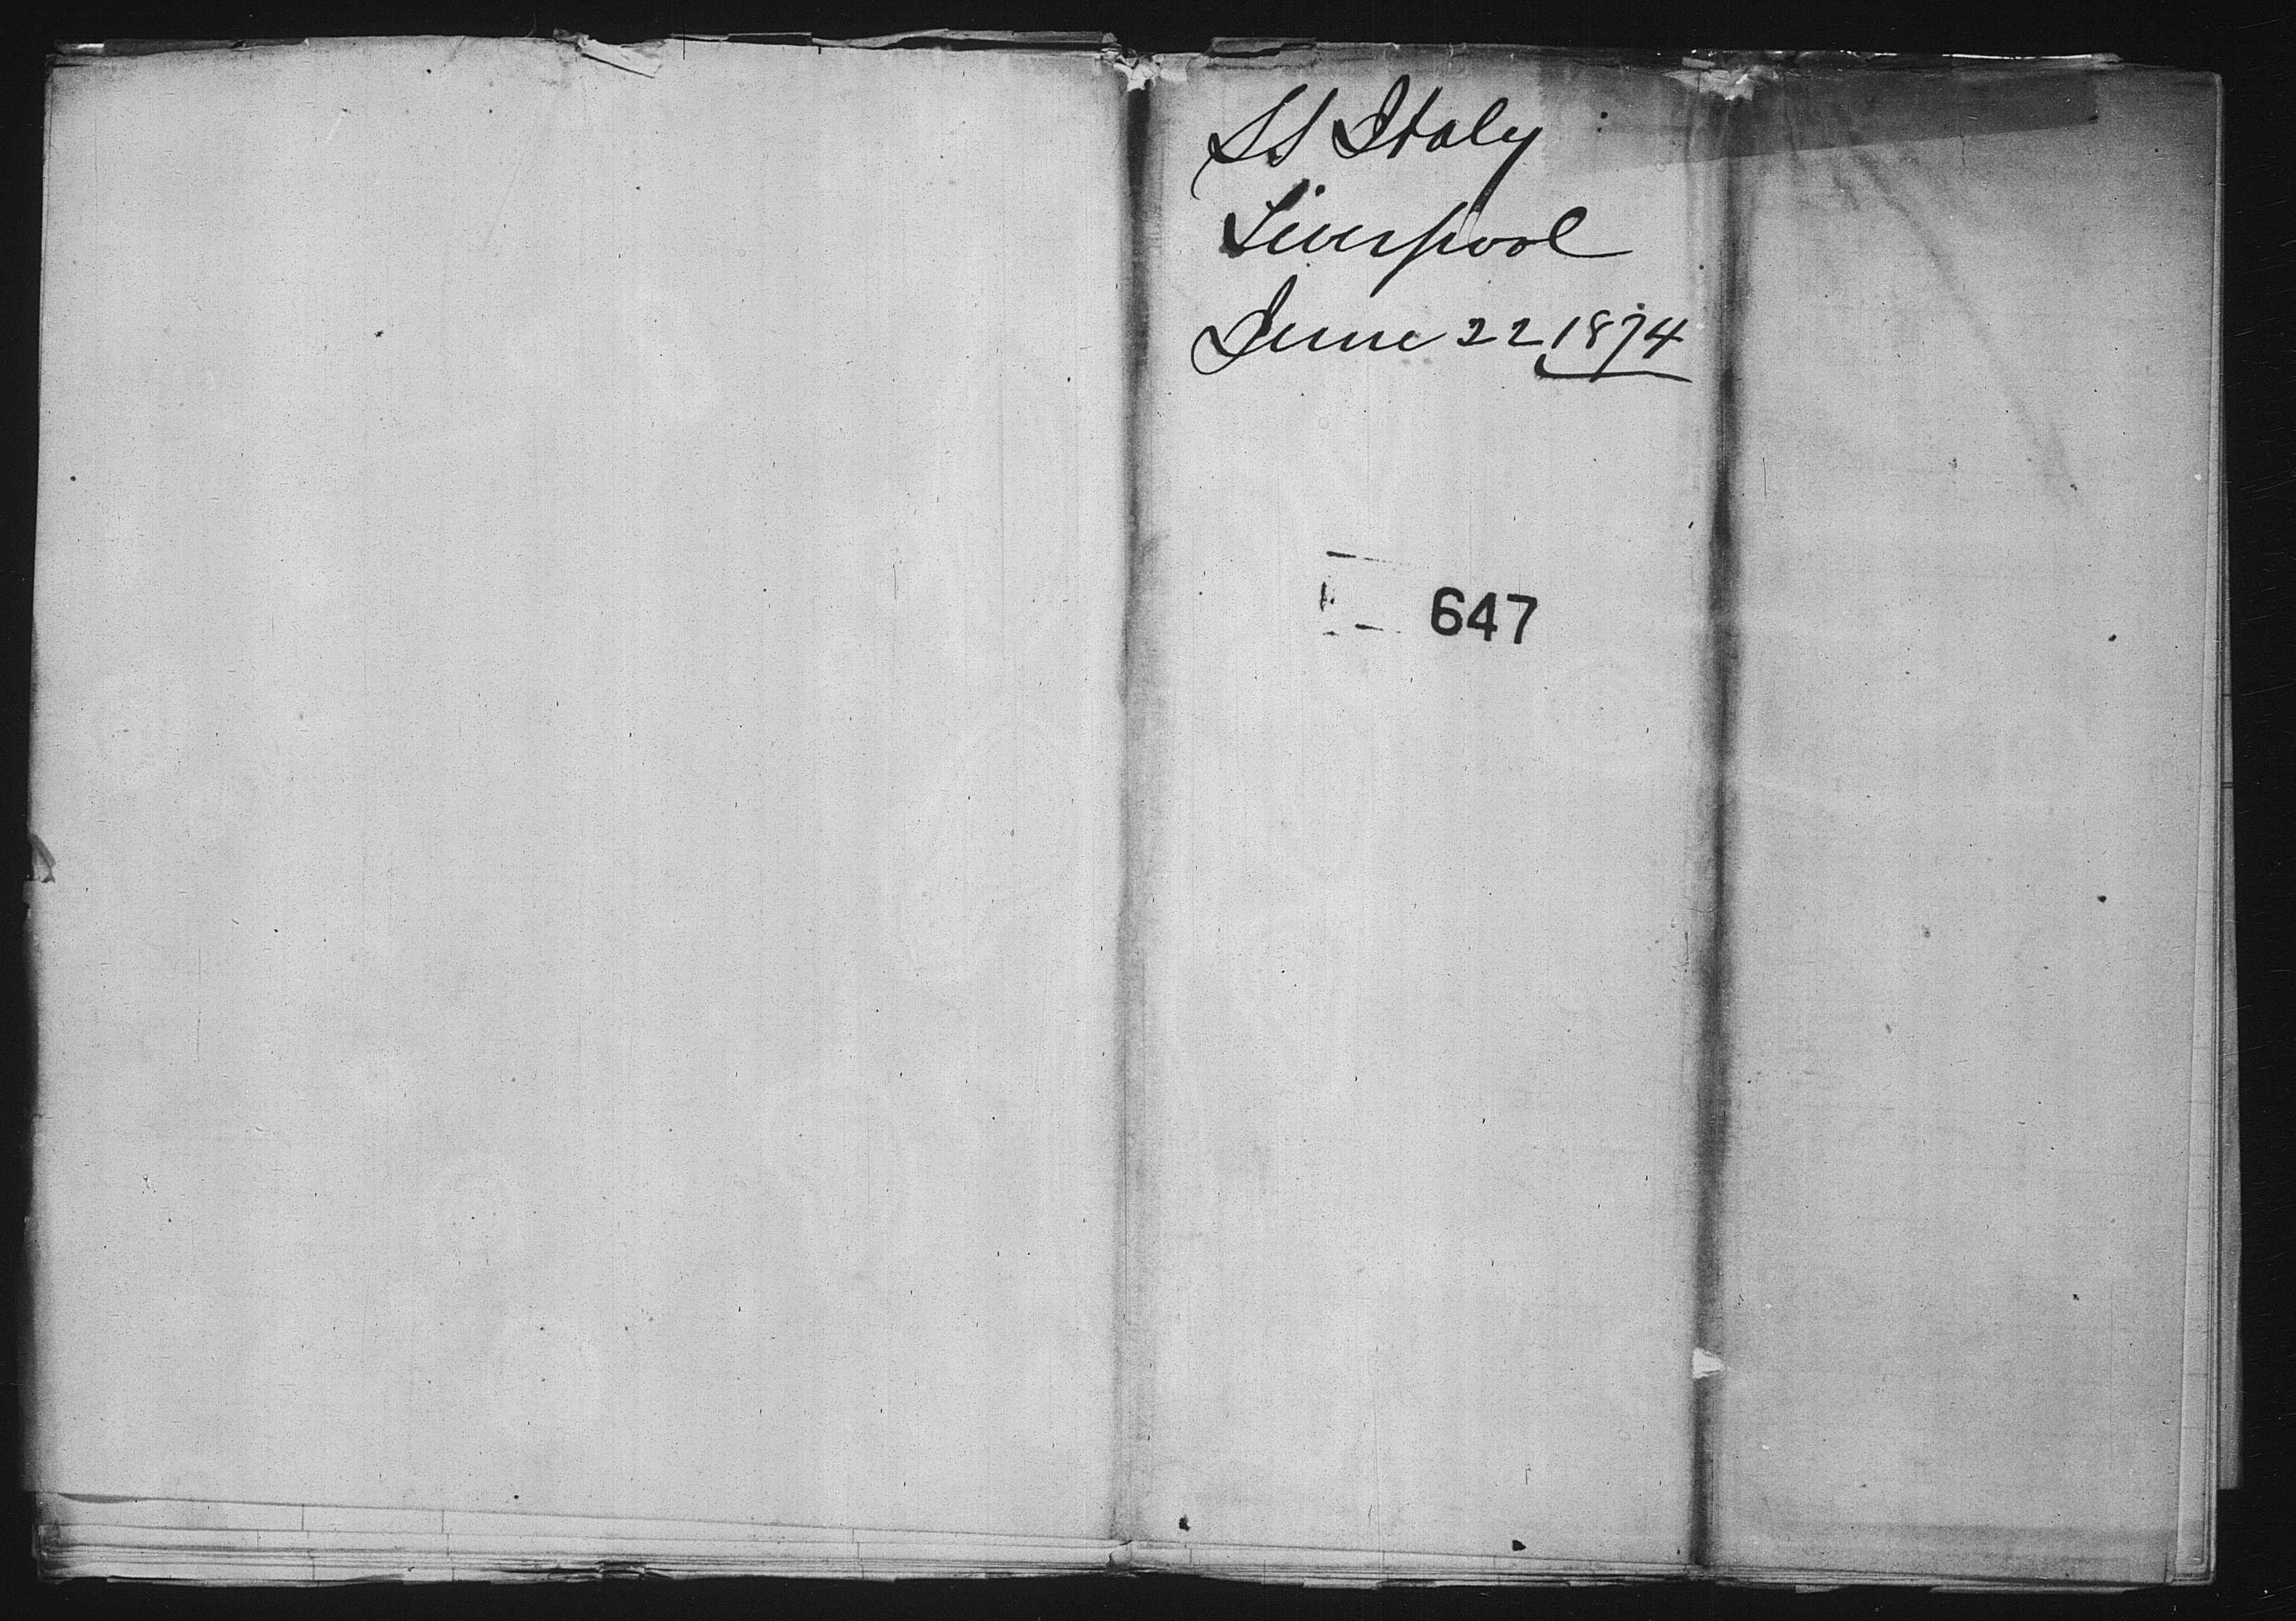 SS Italy
Liverpool
June 22 1874
647